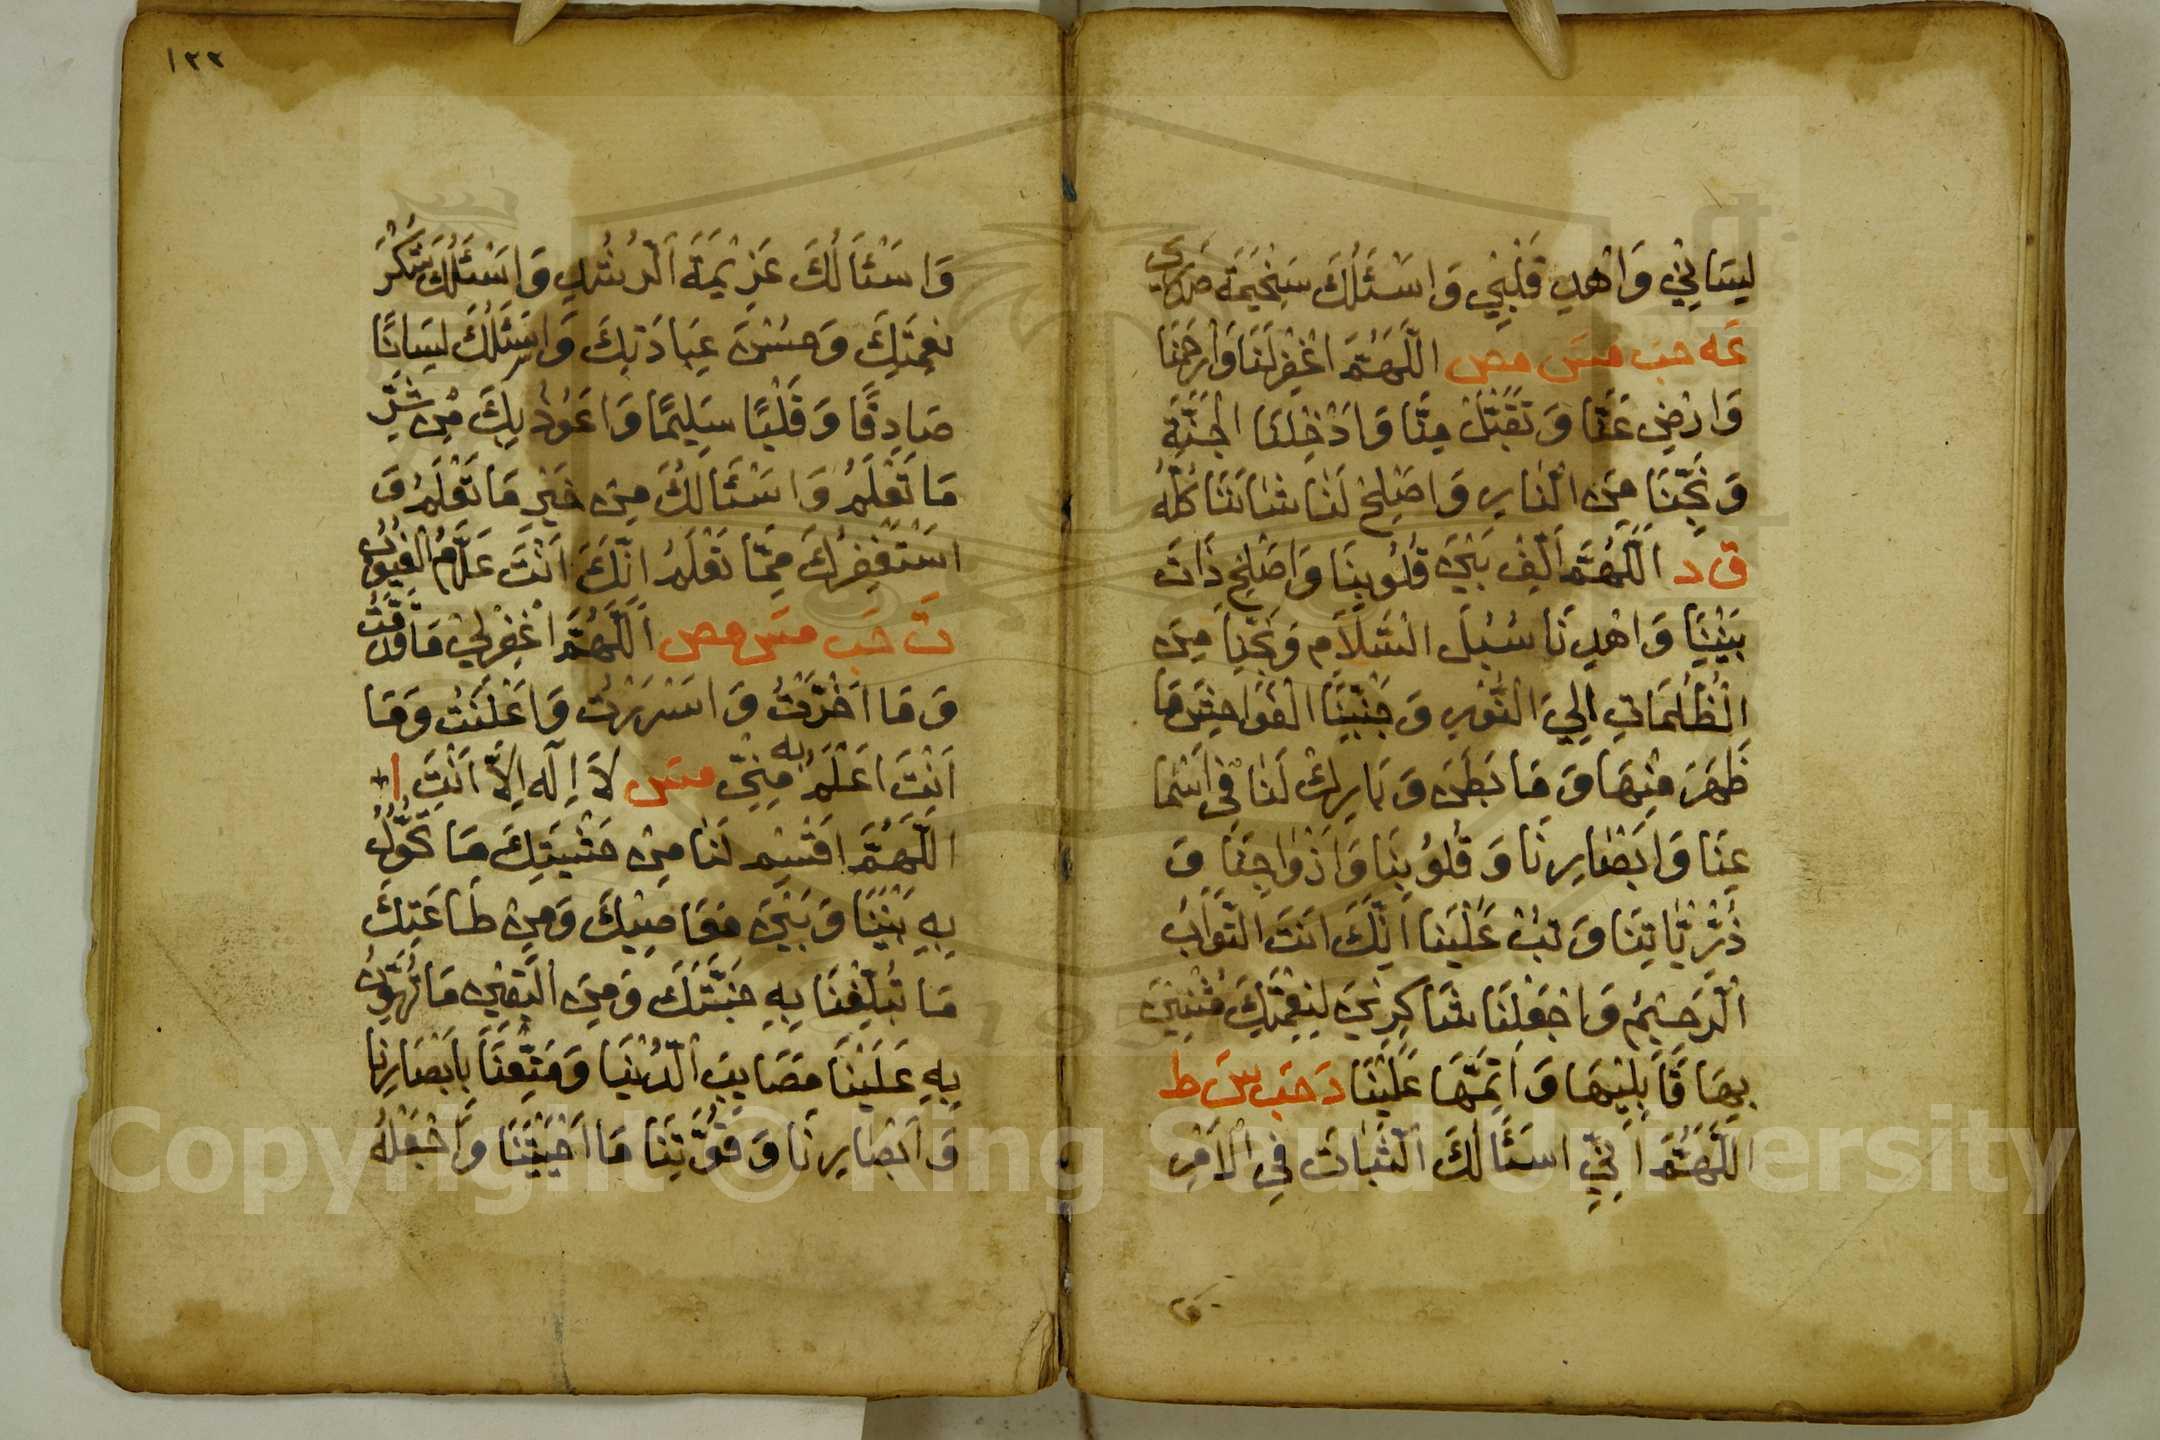 لِسَانِيْ وَاهْدِ قَلْبِيْ وَاسْئَلُكَ سَخِيْمَةَ صَدْرِي
عَه حب مس مص اَللّٰهُمَّ اغْفِرْلَنَا وَارْحَمْنَا
وَارْضِ عَنَّا وَتَقَبَّلْ مِنَّا وَاَدْخِلْنَا الْجَنَّةَ
وَنَجِّنَا مِنَ النَّارِ وَاَصْلِحْ لَنَا شَاْنَنَا كُلَّهُ
ق د اَللّٰهُمَّ اَلِّفْ بَيْنَ قُلُوبِنَا وَاَصْلِحْ ذَاتَ
بَيْنِنَا وَاهْدِنَا سُبُلَ السَّلَامِ وَنَجِّنَا مِنَ
الظُّلُمَاتِ اِلَى النُّوْرِ وَجَنِّبْنَا الْفَوَاحِشَ مَا
ظَهَرَ مِنْهَا وَمَا بَطَنَ وَبَارِكْ لَنَا فِي اَسْمَا
عِنَا وَاَبْصَارِنَا وَقُلُوْبِنَا وَاَزْوَاجِنَا وَ
ذُرِّيَّاتِنَا وَتُبْ عَلَيْنَا اِنَّكَ اَنْتَ التَّوَّابُ
الرَّحِيْمُ وَاجْعَلْنَا شَاكِرِيْنَ لِنِعْمَتِكَ مُثْنِيْنَ
بِهَا قَابِلِيْهَا وَاَتِمَّهَا عَلَيْنَا دَ حَب مس ط
اَللّٰهُمَّ اِنِّيْ اَسْئَالُكَ الثَّبَاتَ فِي الْاَمْرِ
١٢٢
وَاَسْئَالُكَ عَزِيْمَةَ الرُّشْدِ وَاَسْئَلُكَ شُكْرَ
نِعْمَتِكَ وَحُسْنَ عِبَادَتِكَ وَاَسْئَلُكَ لِسَانًا
صَادِقًا وَقَلْبًا سَلِيْمًا وَاَعُوْذُ بِكَ مِنْ شَرِّ
مَا تَعْلَمُ وَاَسْئَالُكَ مِنْ خَيْرِ مَا تَعْلَمُ وَ
اَسْتَغْفِرُكَ مِمَّا تَعْلَمُ اِنَّكَ اَنْتَ عَلَّامُ الْغُيُوْبِ
تَ حَب مس مص اَللّٰهُمَّ اغْفِرْلِيْ مَا قَدَّمْتُ
وَمَا اَخَّرْتُ وَاَسْرَرْتُ وَاَعْلَنْتُ وَمَا
اَنْتَ اَعْلَمُ بِهِ مِنِّيْ مس لَا اِلٰهَ اِلَّا اَنْتَ ا
اَللّٰهُمَّ اقْسِمْ لَنَا مِنْ خَشْيَتِكَ مَا تَحُوْلُ
بِهِ بَيْنَنَا وَبَيْنَ مَعَاصِيْكَ وَمِنْ طَاعَتِكَ
مَا تُبَلِّغُنَا بِهِ جَنَّتَكَ وَمِنَ الْيَقِيْنِ مَا تُهَوِّنُ
بِهِ عَلَيْنَا مَصَايِبَ الدُّنْيَا وَمَتِّعْنَا بِاَبْصَارِنَا
وَاَبْصَارِنَا وَقُوَّتِنَا مَا اَحْيَيْتَنَا وَاجْعَلْهُ
Copyright © King Saud University